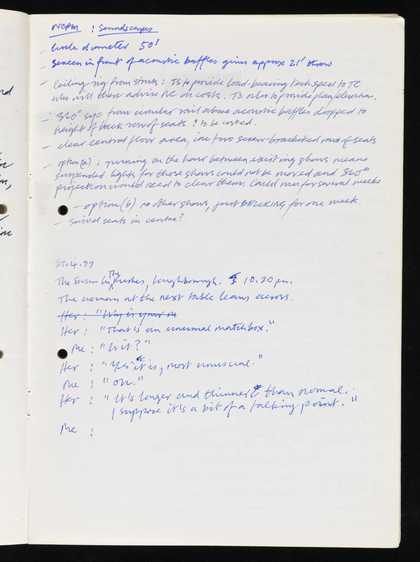 : Soundscapes
Circle diameter 50'
Screen in front of acoustic baffles gives approx 21' throw
- Ceiling rig from struts : TB to provide load-bearing tech spec to TC
who will then advise on costs. TB also to provide plan/elevation.
- 360° from circular rail above acoustic baffles dropped to
height of back row of seats ? to be costed.
- clear central floor area, inc two seats bracketed row of seats
- option (a) : running on the hour between existing shows means
suspended lights for those shows could not be moved and 360°
projection would need to clear them. Could run for several weeks
- option (b) no other shows, just for one week.
- Swivel seats in centre?
.4.97
The Swan in the Rushes, Loughborough. 10.20 pm.
The woman at the next table leans across.
Her : "Why is your
Her : "That is an unusual matchbox."
Me : "Is it?"
Her : "Yes it is, most unusual."
Me : "Oh."
Her : "It's longer and thinner than normal.
I suppose it's a bit of a talking point."
Me :